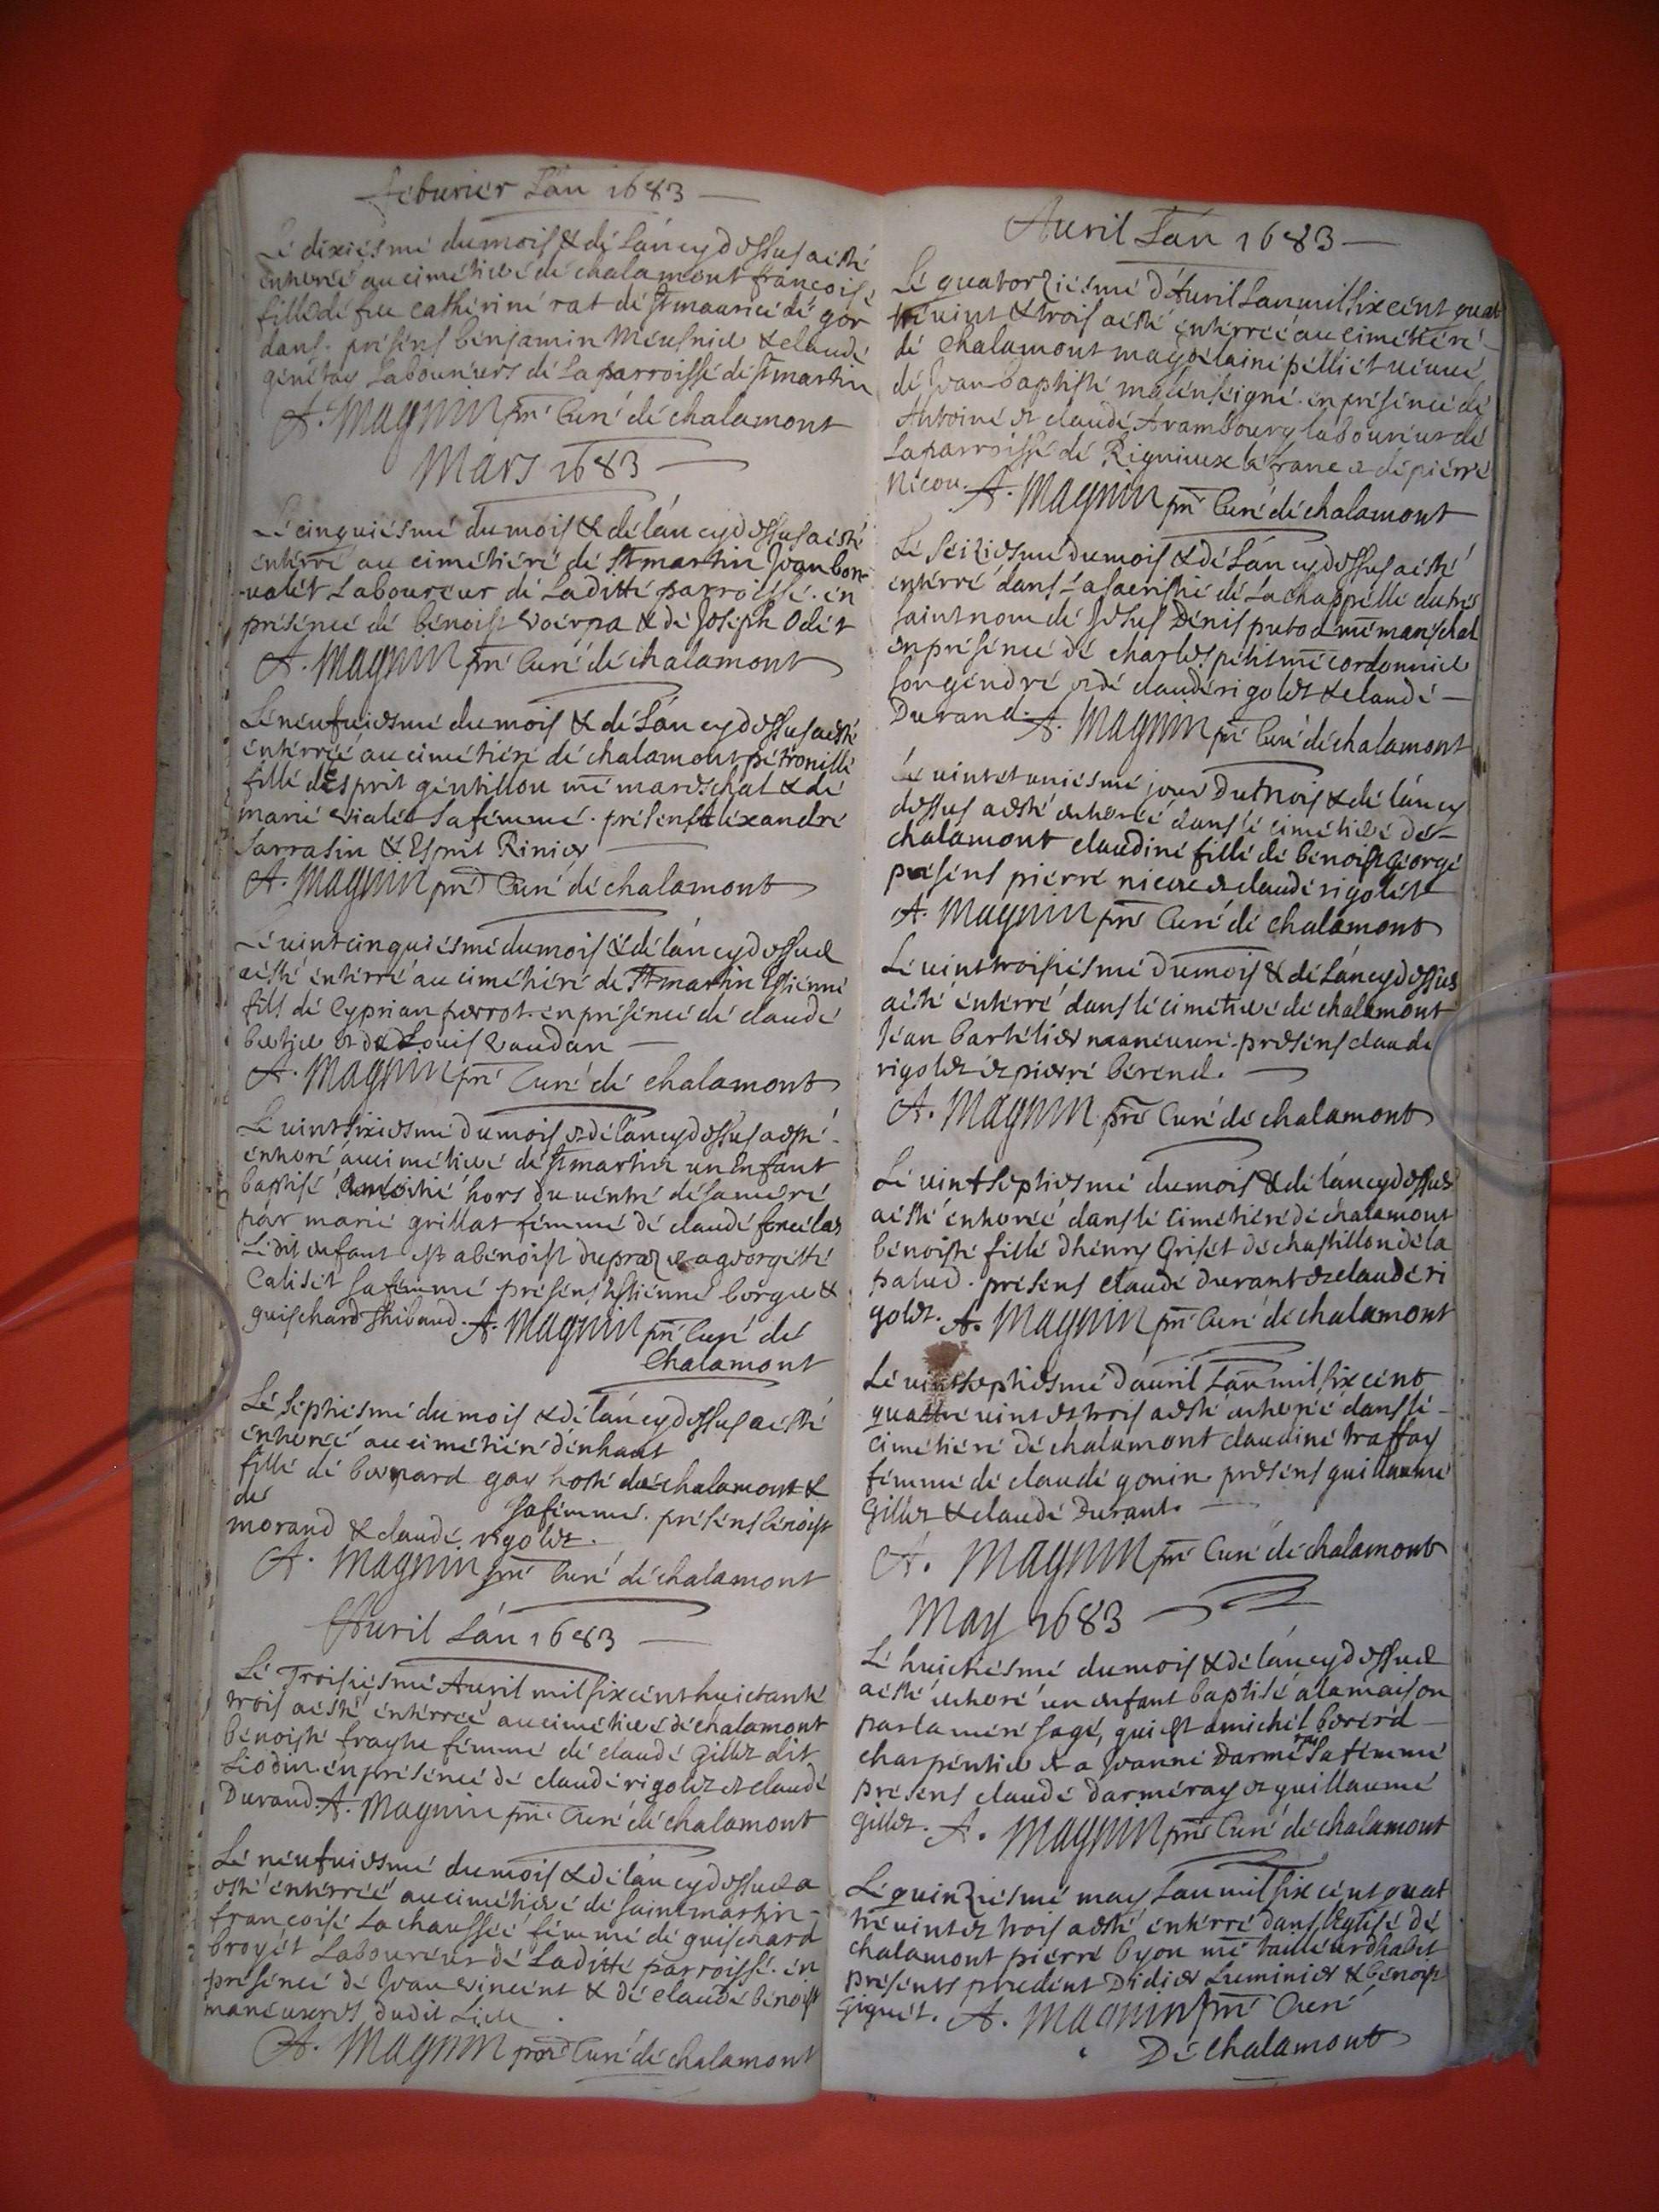 feburier Lan 1683
Le dixiesme du mois & de Lan cy dessus a esté
enterreé au cimetiere de chalamont françoise
fille de feu catherine rat de St maurice de gor
dans. présens benjamin Meusnier & claude
genetay Laboureurs de La parroisse de St martin
A. Magnin pre Curé de chalamont
Mars 1683
Le cinquiesme du mois & de lan cy dessus a esté
enterré au cimetiere de St martin Jvan bon
ualet Laboureur de Laditte parroisse. en
présence de benoist & de Joseph Odet
A. Magnin pre Curé de chalamont
Le neufuiesme du mois & de Lan cy dessus a esté
enterreé au cimetiere de chalamont pétronille
fille dEsprit gentillon me mareschal & de
marie vialet sa femme. présens Alexandre
Sarrasin & Esprit Rinier
A. Magnin pre Curé de chalamont
Le uintcinquiesme du mois & de lan cy dessus
a esté enterré au cimetiere de St martin Estienne
fils de Cyprian perrot. en présence de claude
bertier et de Louis vaudan
A. Magnin pre Curé de chalamont
Le uintsixiesme du mois & de lan cy dessus a esté
enterré au cimetiere de St martin un Enfant
baptisé a moitié hors du uentre de sa mere
par marie grillat femme de claude forcelas
Ledit enfant est a benoist dupraz & a georgette
Caliset sa femme présens Estienne borgue &
guischard Thibaud. A. Magnin pre Curé de
Chalamont
Le septiesme du mois & de lan cy dessus a esté
enterreé au cimetiere d'enhaut
fille de bernard gay hoste de chalamont &
de sa femme. présens benoist
morand & claude rigolet.
A. Magnin pre Curé de chalamont
Auril Lan 1683
Le Troisiesme Auril mil six cent huictante
trois a esté enterreé au cimetiere de chalamont
benoiste femme de claude Gillet dit
Liodin. en présence de claude rigolet et claude
Durand. A. Magnin pre Curé de chalamont
Le neufuiesme du mois & de lan cy dessus a
esté enterreé au cimetiere de saint martin
françoise La chausseé femme de guischard
broyet Laboureur de Laditte parroisse. en
présence de Jvan vincent & de claude benoist
maneuures dudit Lieu.
A. Magnin pre Curé de chalamont
Auril Lan 1683
Le quatorziesme d'Auril Lan mil six cent quat
tre uint & trois a esté enterreé au cimetiere
de Chalamont magdelaine pelliet ueuue
de Jvan baptiste malenseigne. en présence de
Antoine et claude Arambourg laboureur de
La parroisse de Rignieux le franc & de pierre
Nicou. A. Magnin pre Curé de chalamont
Le seiziesme du mois & de Lan cy dessus a esté
enterré dans La sacristie de La chappelle du tres
saint nom de Jesus Denis putod me mareschal
en présence de charles petit me cordonnier
son gendre et de claude rigolet & claude
Durand. A. Magnin pre Curé de chalamont
Le uint et uniesme jour Du Mois & de lan cy
dessus a esté enterreé dans le cimetiere de
chalamont claudine fille de benoist george
présens pierre nicou & claude rigolet
A. Magnin pre Curé de chalamont
Le uinttroisiesme Du mois & de Lan cy dessus
a esté enterré dans le cimetiere de chalamont
Jean bartelier maneuure. présens claude
rigolet et pierre berend.
A. Magnin pre Curé de chalamont
Le uintseptiesme du mois & de lan cy dessus
a esté enterreé dans le Cimetiere de chalamont
benoiste fille dhenry Griset de chastillon de la
palud. présens claude durant & claude ri
golet. A. Magnin pre Curé de chalamont
Le uintseptiesme dauril Lan mil six cent
quattre uint et trois a esté enterreé dans le
cimetiere de chalamont claudine traffay
femme de claude gonin. présens guillaume
Gillet & claude Durant.
A. Magnin pre Curé de chalamont
May 1683
Le huictiesme du mois & de lan cy dessus
a esté enterré un enfant baptisé a la maison
par la mere sage, qui est a michel bererd
charpentier & a Jvanne Darme ray sa femme
présens claude darmeray et guillaume
Gillet. A. Magnin pre Curé de chalamont
Le quinziesme may Lan mil six cent quat
tre uint et trois a esté enterré dans l'Eglise de
chalamont pierre byon me tailleur dhabit
présents prudent Didier Luminier & benoist
Giguet. A. Magnin pre Curé
De chalamont